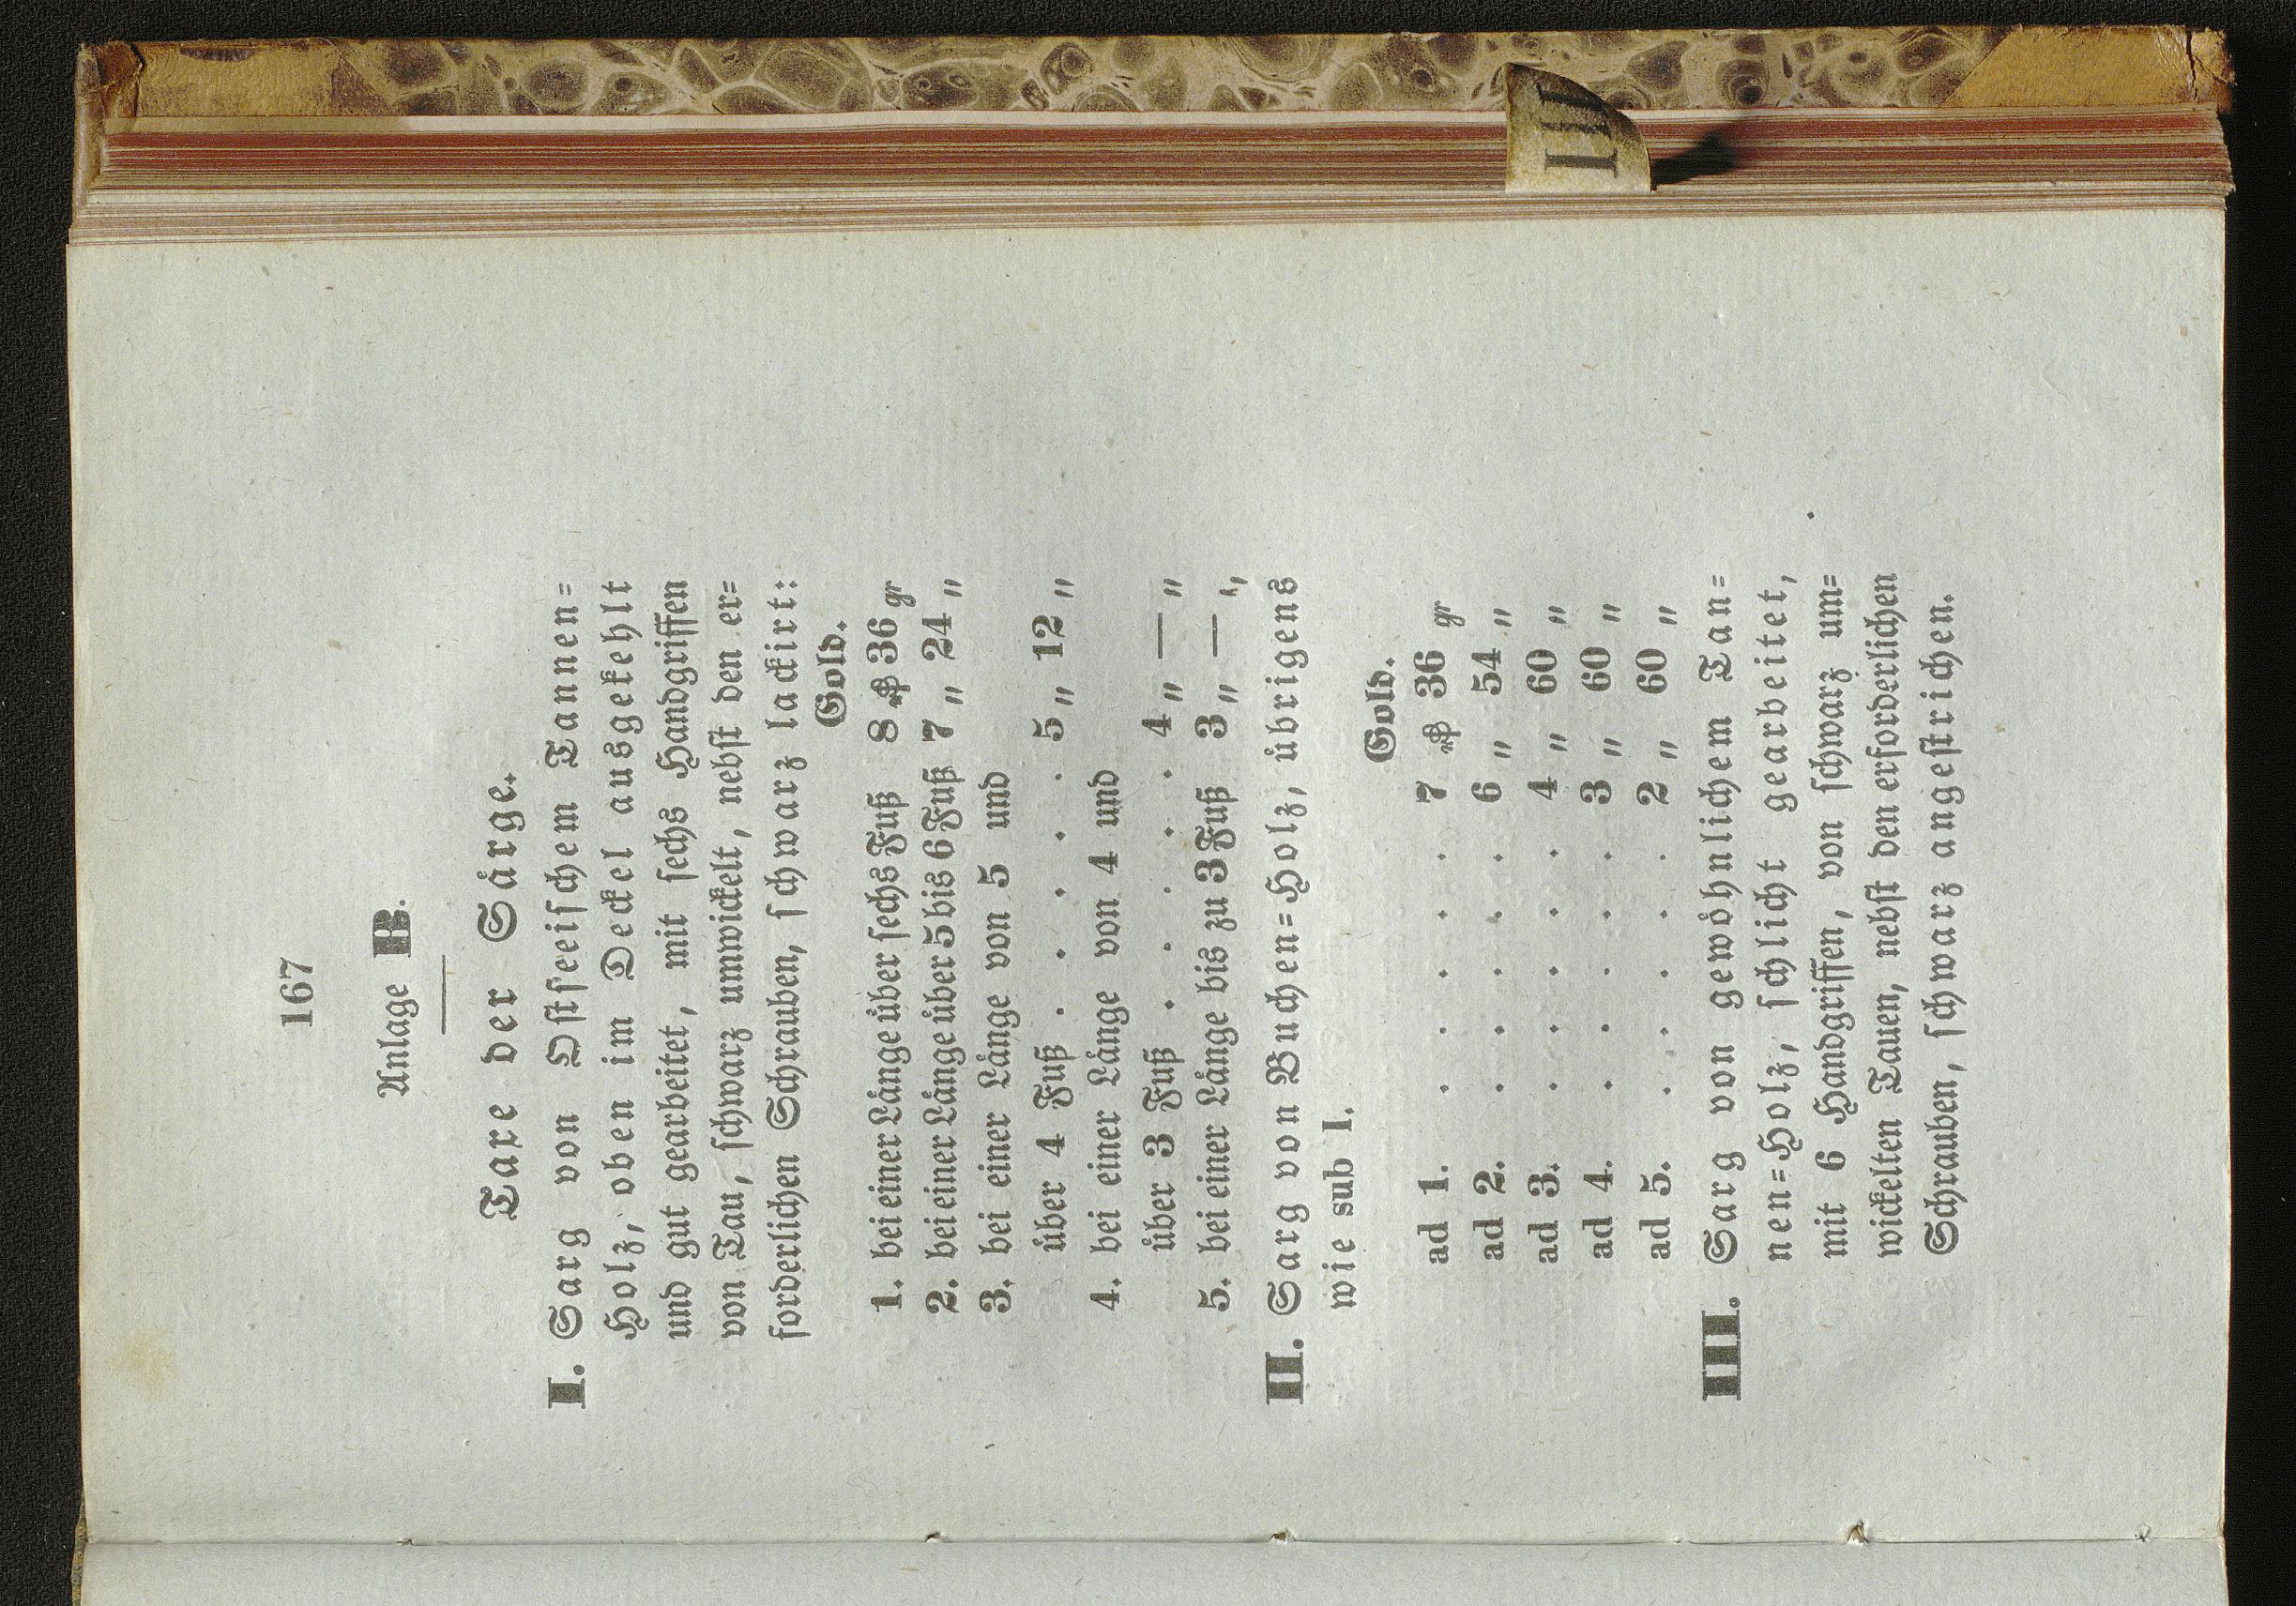 167
Anlage B.
Taxe der Särge.
I. Sarg von Ostseeischem Tannen=
Holz, oben im Deckel ausgekehlt
und gut gearbeitet, mit sechs Handgriffen
von Tau, schwarz umwickelt, nebst den er=
forderlichen Schrauben, schwarz lackirt:
Gold.
1. bei einer Länge über sechs Fuß 8 ₰ 36 gr
2. bei einer Länge über 5 bis 6 Fuß 7 „ 24 „
3. bei einer Länge von 5 und
über 4 Fuß . . . . . 5 „ 12 „
4. bei einer Länge von 4 und
über 3 Fuß . . . . . 4 „ — „
5. bei einer Länge bis zu 3 Fuß 3 „ — „
II. Sarg von Buchen=Holz, übrigens
wie sub I.
Gold.
ad 1. . . . . . 7 ₰ 36 gr
ad 2. . . . . . 6 „ 54 „
ad 3. . . . . . 4 „ 60 „
ad 4. . . . . . 3 „ 60 „
ad 5. . . . . . 2 „ 60 „
III. Sarg von gewöhnlichem Tan=
nen=Holz, schlicht gearbeitet,
mit 6 Handgriffen, von schwarz um=
wickelten Tauen, nebst den erforderlichen
Schrauben, schwarz angestrichen.
III